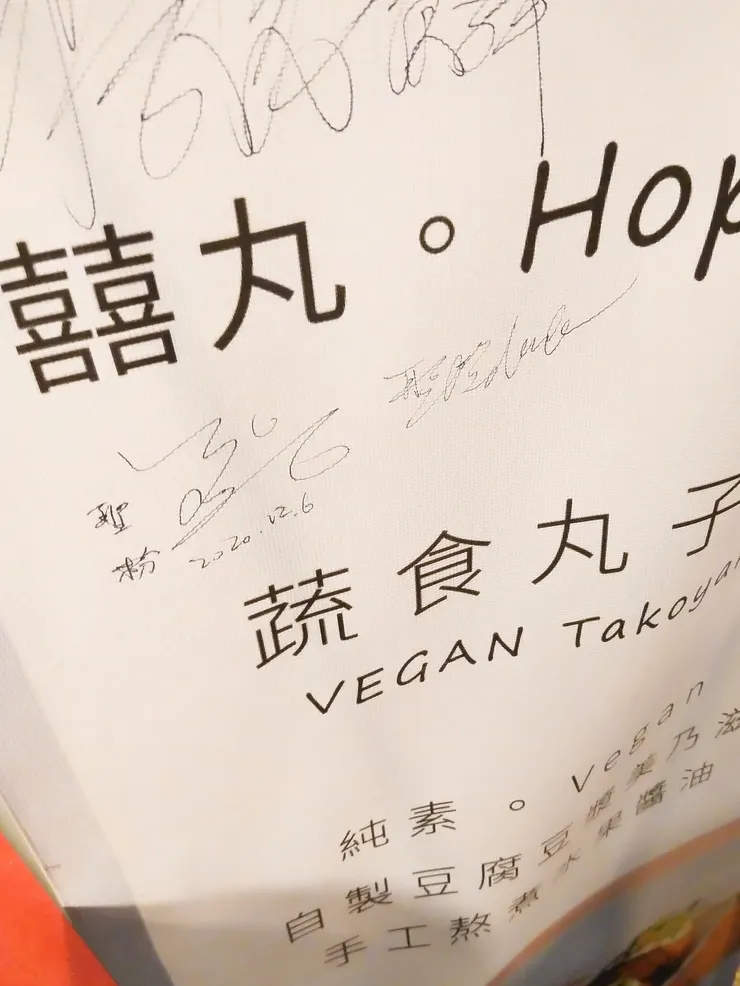 囍丸。Hop
聖
粉 2020.12.6
蔬食丸子
VEGAN Takoya
純素。Vegan
自製豆腐豆漿美乃滋
手工熬煮水果醬油